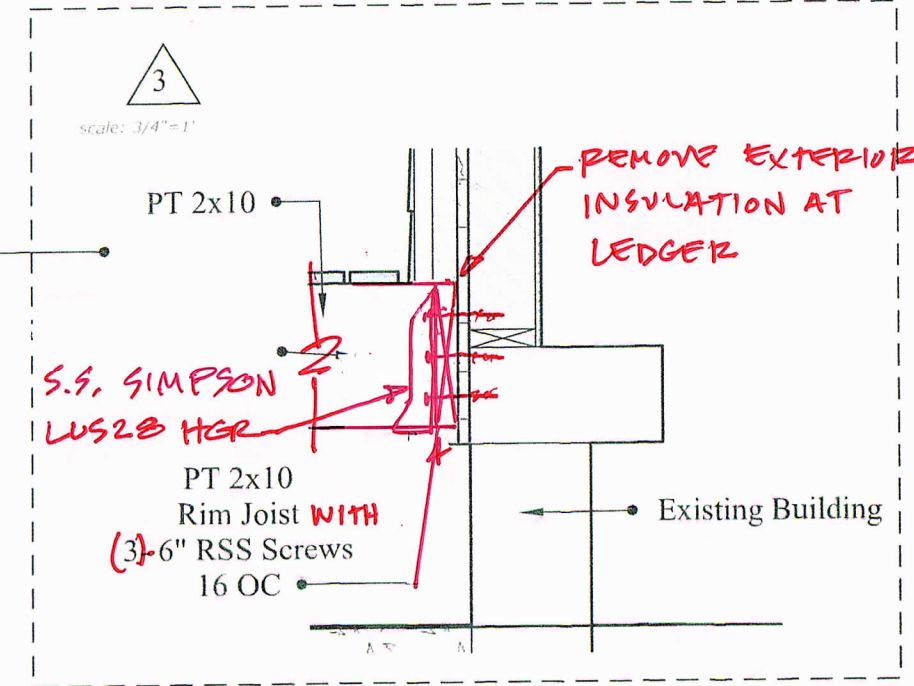 3
scale: 3/4"=1'
PT 2x10
REMOVE EXTERIOR
INSULATION AT
LEDGER
S.S. SIMPSON
LUS28 HGR
PT 2x10
Rim Joist WITH
(3)-6" RSS Screws
16 OC
Existing Building